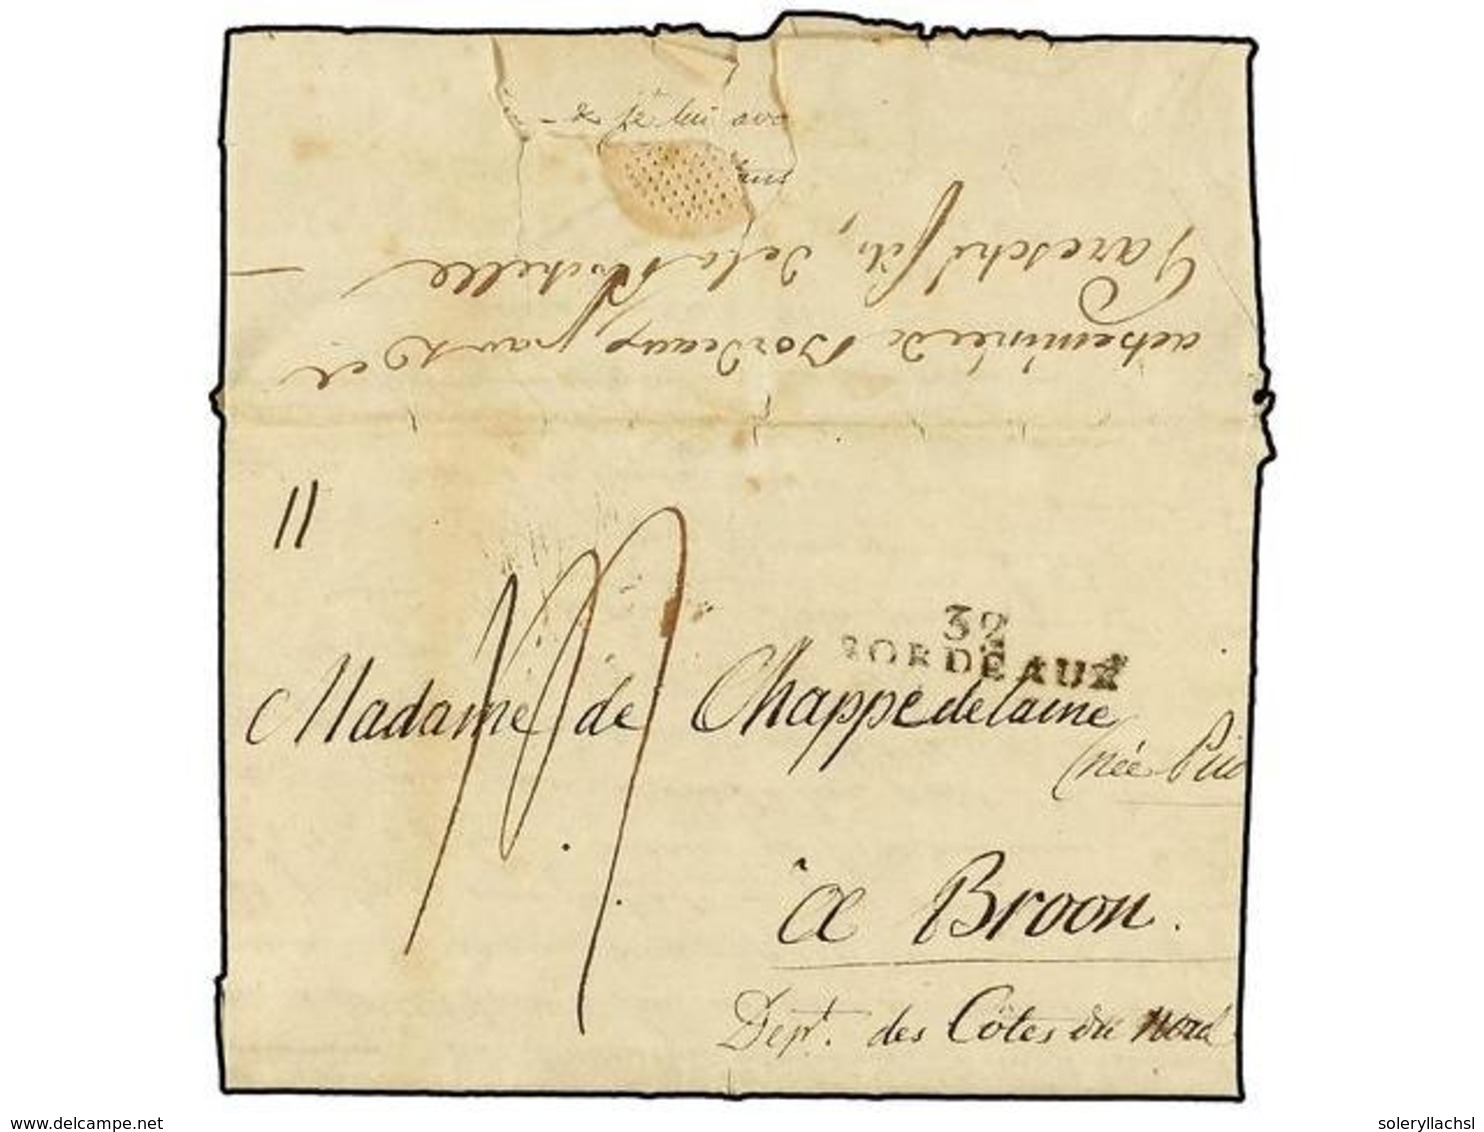 - & je lui avo
ans
Gareschè fils, de la Rochelle
acheminée de Bordeaux, par
11
32
BORDEAUX
Madame de Chappedelaine
(née Pic
à Broon.
Dept. des Côtes du Nord
delcampe.net
soleryllachsl